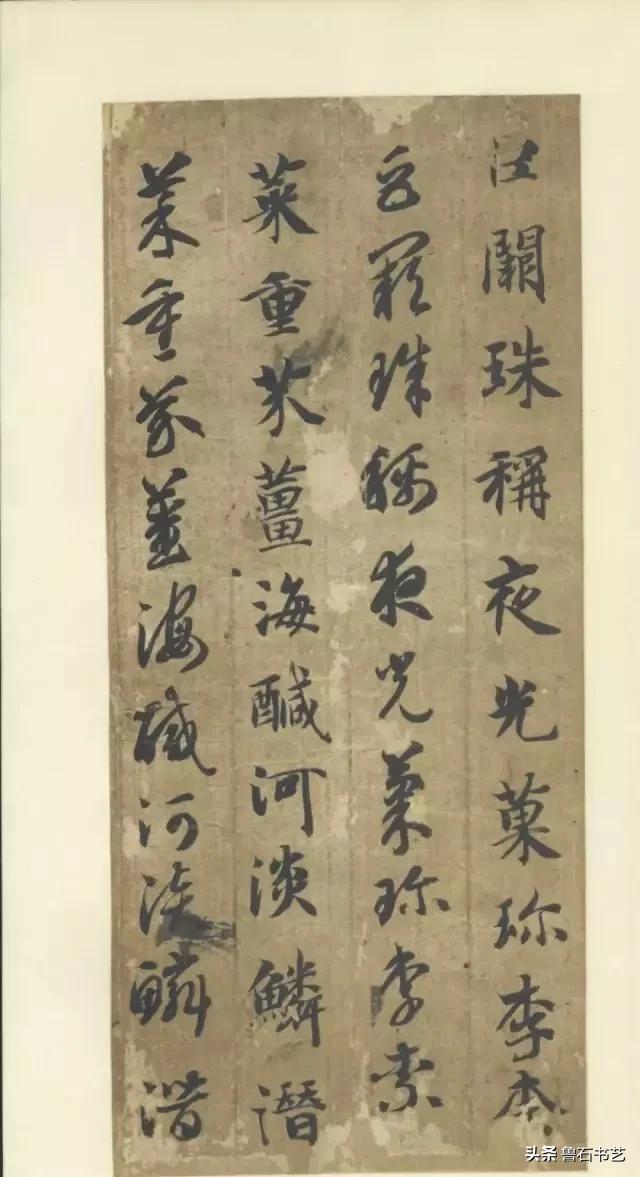 巨闕珠稱夜光菓珎李柰
巨闕珠稱夜光菓珎李柰
菜重芥薑海醎河淡鱗潛
菜重芥薑海醎河淡鱗潛
头条 鲁石书艺